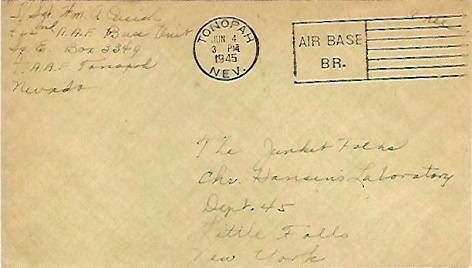 T/Sgt. Wm. A.
A.A.F. Base Unit
Sq. E. Box 3349
T.A.A.F. Tonopah
Nevada
TONOPAH
JUN 4
3 PM
1945
NEV.
AIR BASE
BR.
Free
The Junket Folks
Chr. Hansen's Laboratory
Dept. 45
Little Falls
New York